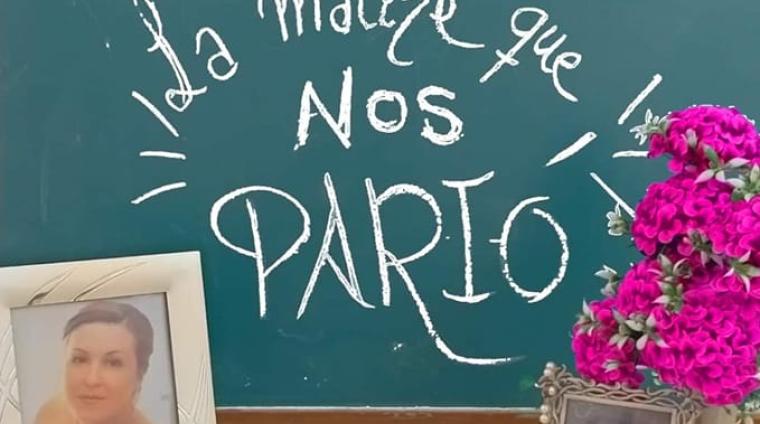 La madre que
NOS
PARIÓ